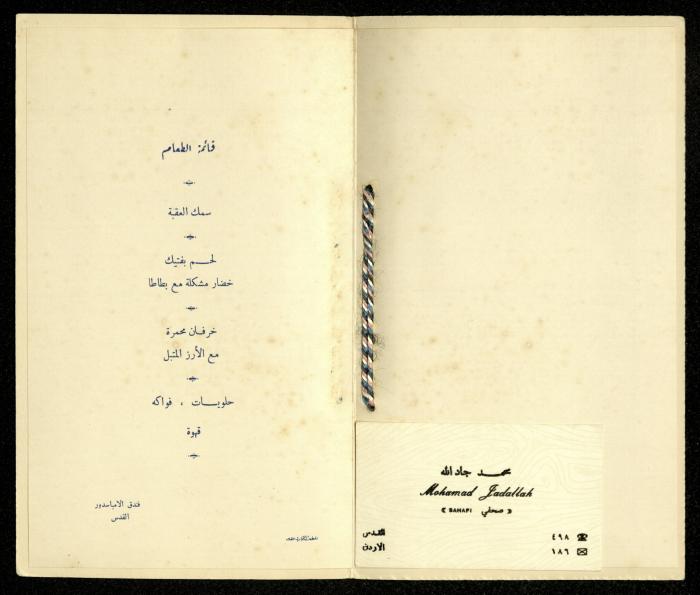 قائمة الطعام
سمك العقبة
لحم بفتيك
خضار مشكلة مع بطاطا
خرفان محمرة
مع الأرز المتبل
حلويات ، فواكه
قهوة
فندق الامباسدور
القدس
محمد جاد الله
Mohamad Jadallah
« صحفي SAHAFI »
القدس
الاردن
☎ ٤٩٨
✉ ١٨٦